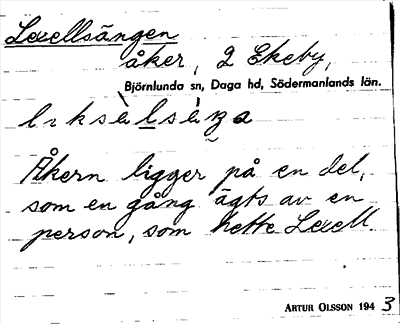 Lexellsängen
åker, 2 Ekeby,
Björnlunda sn, Daga hd, Södermanlands län.
Åkern ligger på en del,
som en gång ägts av en
person, som hette Lexell.
ARTUR OLSSON 1943